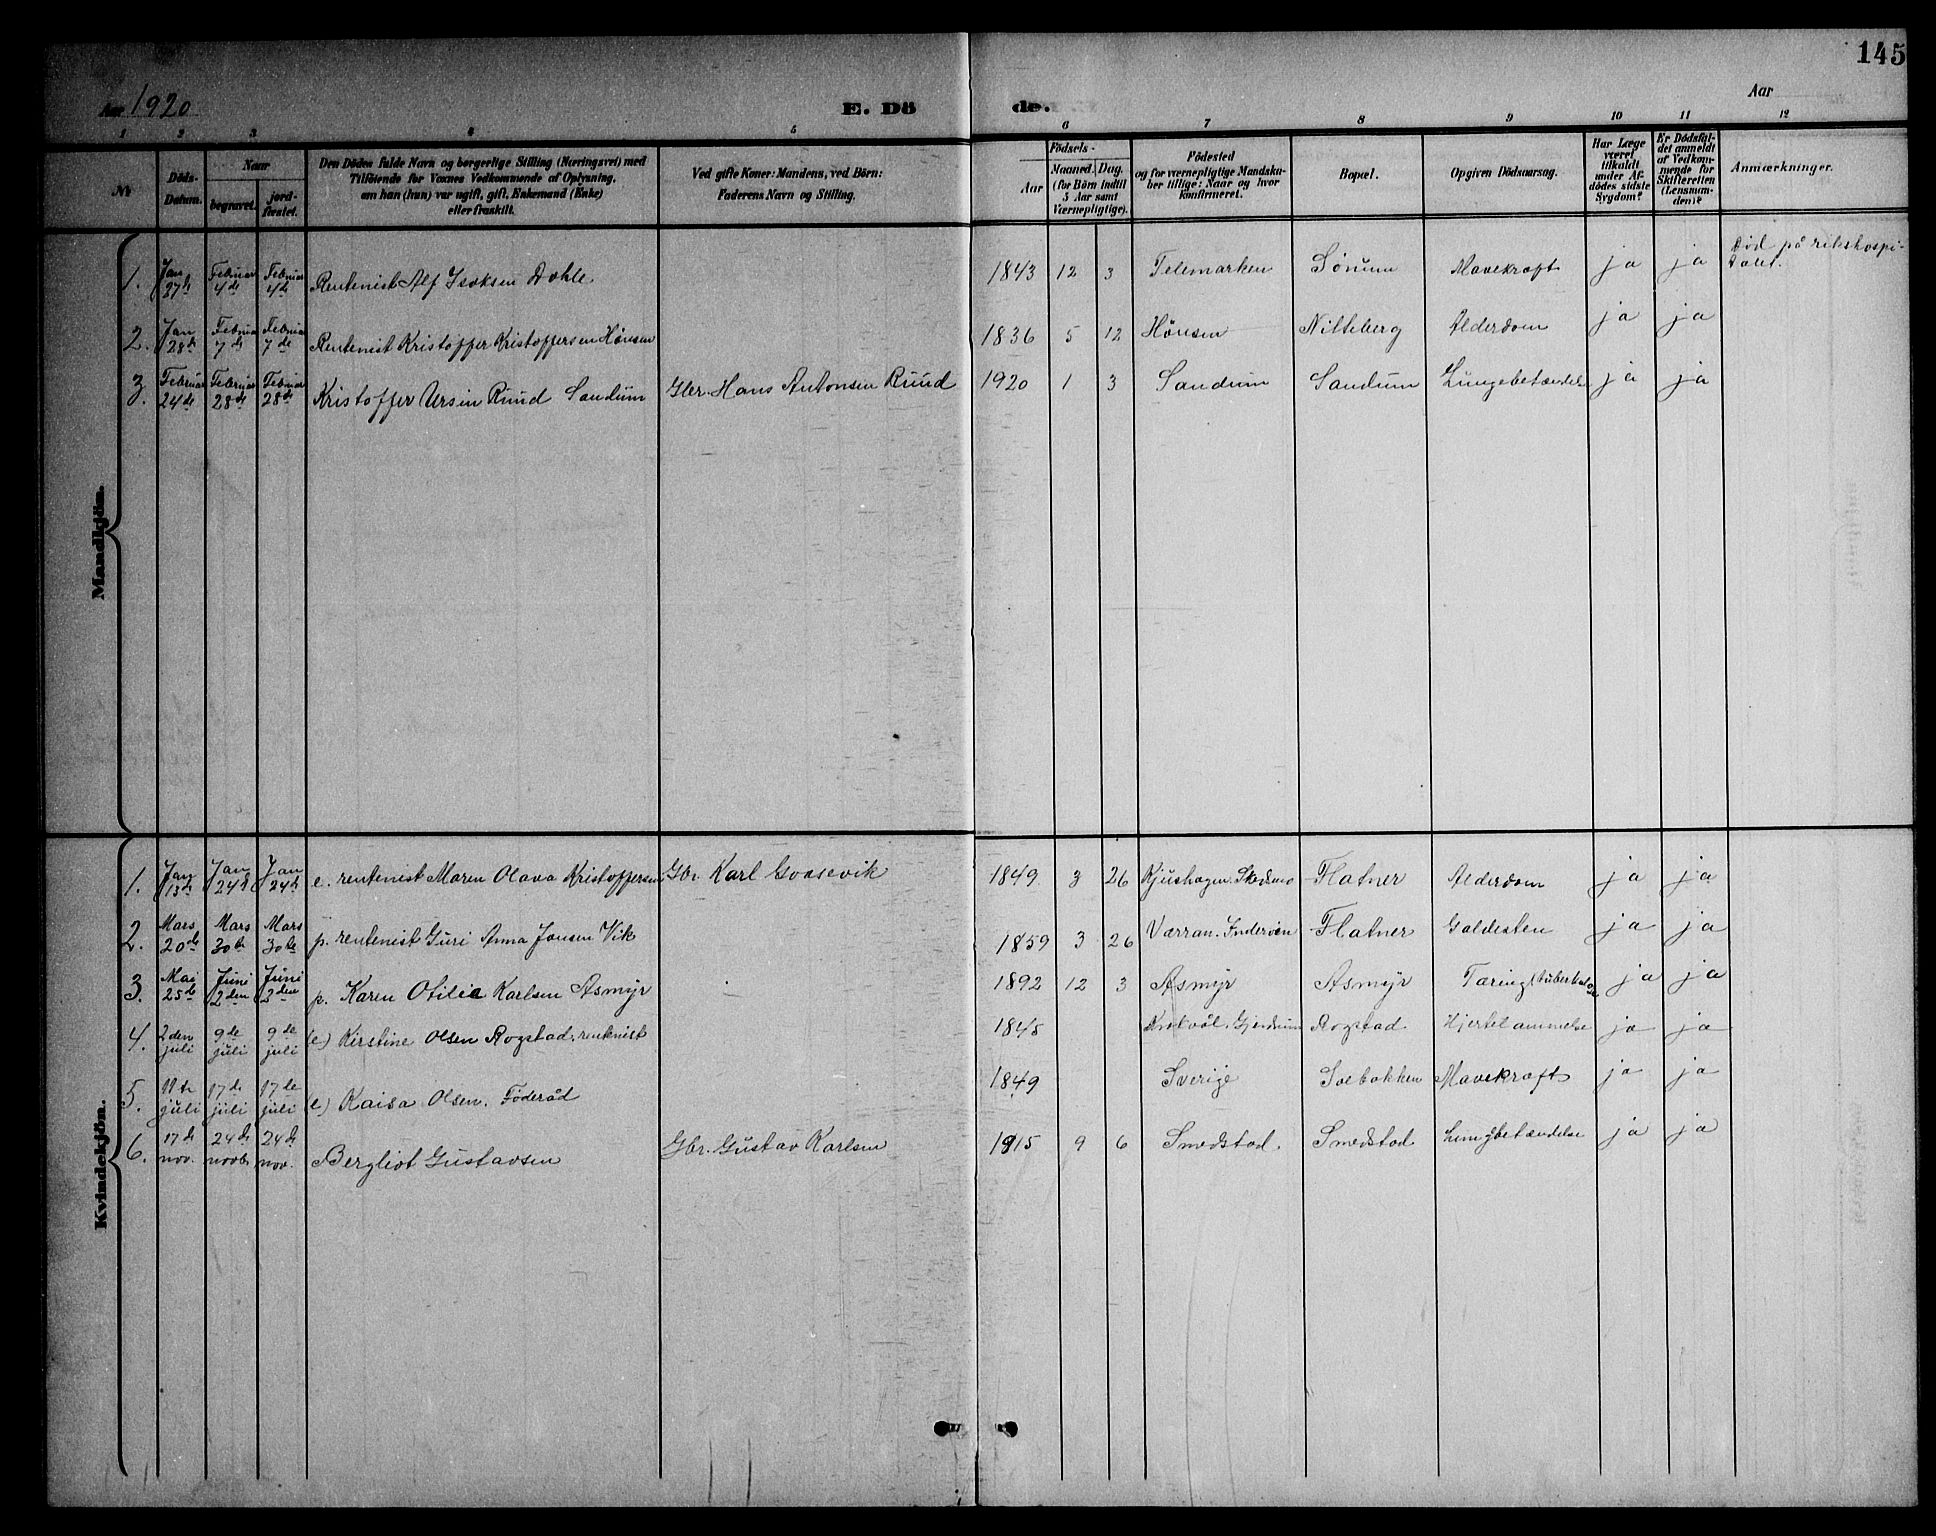 145
Aar 1920 E. Dö de. Aar
1 2 3 4 5 6 7 8 9 10 11 12
№ Døds-Datum. Naar begravet. jordfæstet. Den Dødes fulde Navn og borgerlige Stilling (Næringsvei) med Tilföiende for Voxnes Vedkommende af Oplysning, om han (hun) var ugift, gift, Enkemand (Enke) eller fraskilt. Ved gifte Koner: Mandens, ved Börn: Faderens Navn og Stilling. Födsels- Aar Maaned. Dag. (for Börn indtil 5 Aar samt Værnepligtige). Födested og for værnepligtige Mandskaber tillige: Naar og hvor konfirmeret. Bopæl. Opgiven Dödsaarsag. Har Læge været tilkaldt under Afdödes sidste Sygdom? Er Dödsfaldet anmeldt af Vedkommende for Skifteretten (Lensmanden)? Anmærkninger.
Mandkjön.
1. Jan 27de Februar 4de Februar 4de Rentenist Alf Isaksen Dahle 1843 12 3 Telemarken Sørum Mavekræft ja ja Død på rikshospitalet.
2. Jan 28de Februar 7de Februar 7de Rentenist Kristoffer Kristoffersen Hønsen 1836 5 12 Hønsen Nitteberg Alderdom ja ja
3. Februar 24de Februar 28de Februar 28de Kristoffer Ursin Ruud Sandum Gbr. Hans Antonsen Ruud 1920 1 3 Sandum Sandum Lungebetændelse ja ja
Kvindekjön.
1. Jan 13de Jan 24de Jan 24de e. rentenist Maren Olava Kristoffersen Gbr. Karl Goasevik 1849 3 26 Kjushagen. Skedsmo Flatner Alderdom ja ja
2. Mars 20de Mars 30te Mars 30te p. rentenist Guri Anna Jonsen Vik 1859 3 26 Værran. Inderøen Flatner Galdesten ja ja
3. Mai 25de Juni 2den Juni 2den p. Karen Otilie Karlsen Asmyr 1892 12 3 Asmyr Asmyr Tæring (tuberkulose ja ja
4. 2den juli 9de juli 9de juli (e) Kirstine Olsen Rogstad. rentenist 1845 Gjerdrum Rogstad. Hjertelammelse ja ja
5. 11te juli 17de juli 17de juli (e) Kaisa Olsen. Føderåd 1849 Sverige Solbakken Mavekræft ja ja
6. 17de nov. 24de novb. 24de nov. Bergliot Gustavsen Gbr. Gustav Karlsen 1915 9 6 Smedstad. Smedstad Lungbetændelse ja ja